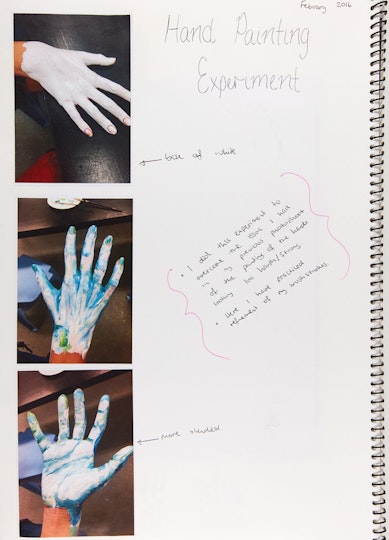 February 2016
Hand Painting
Experiment
base of white
• I did this experiment to
overcome the issue I had
in my previous photoshoot
of the painting of the hands
looking too harsh/strong.
• Here I have practiced
refinement of my brushstrokes.
more blended